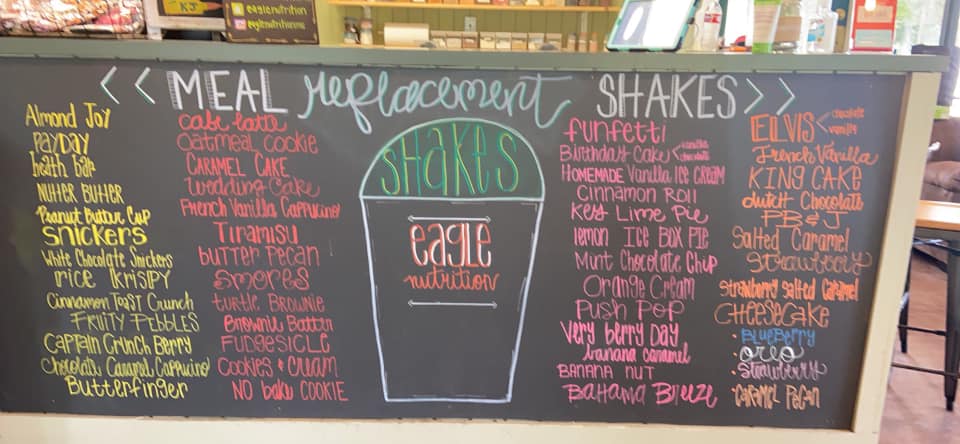 KJ
eaglenutrition
eaglenutritionms
<< MEAL replacement SHAKES >>
Almond Joy
PAYDAY
heath bar
NUTTER BUTTER
Peanut Butter Cup
SNICKERS
White Chocolate Snickers
rice KRISPY
Cinnamon TOAST Crunch
FRUITY PEBBLES
CAPTAIN CRUNCH BERRY
Chocolate Caramel Cappuccino
Butterfinger
cafe latte
OATMEAL COOKIE
CARAMEL CAKE
Wedding Cake
FRENCH VANILLA CAPPUCINO
TIRAMISU
butter PECAN
SMORES
turtle BROWNIE
Brownie Batter
FUDGESICLE
COOKIES & CREAM
NO bake COOKIE
SHAKES
eagle
nutrition
funfetti
Birthday Cake < vanilla chocolate
HOMEMADE Vanilla ICE CREAM
Cinnamon Roll
Key Lime Pie
lemon ICE BOX PIE
Mint Chocolate Chip
Orange Cream
PUSH POP
Very berry Day
banana caramel
BANANA NUT
BAHAMA BREEZE
ELVIS < chocolate vanilla
French Vanilla
KING CAKE
dutch Chocolate
PB & J
Salted Caramel
Strawberry
Strawberry Salted Caramel
CHEESECAKE
• BLUEBERRY
• OREO
• Strawberry
• CARAMEL PECAN